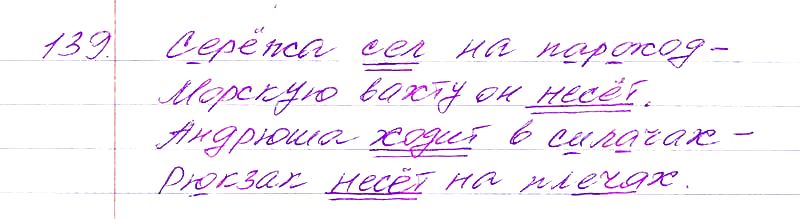 139. Серёжа сел на пароход-
Морскую вахту он несёт.
Андрюша ходит в силачах-
Рюкзак несёт на плечах.